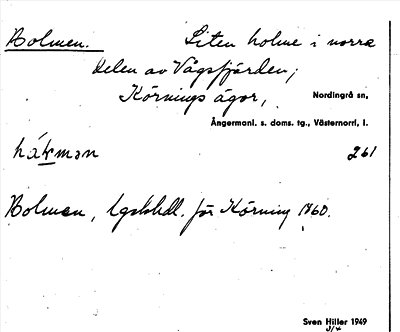 Bolmen. Liten holme i norra
delen av Vågsfjärden;
Körnings ägor, Nordingrå sn,
Ångermanl. s. doms. tg., Västernorrl. l.
261
Bolmen, Lgskhdl. för Körning 1760.
Sven Hiller 1949